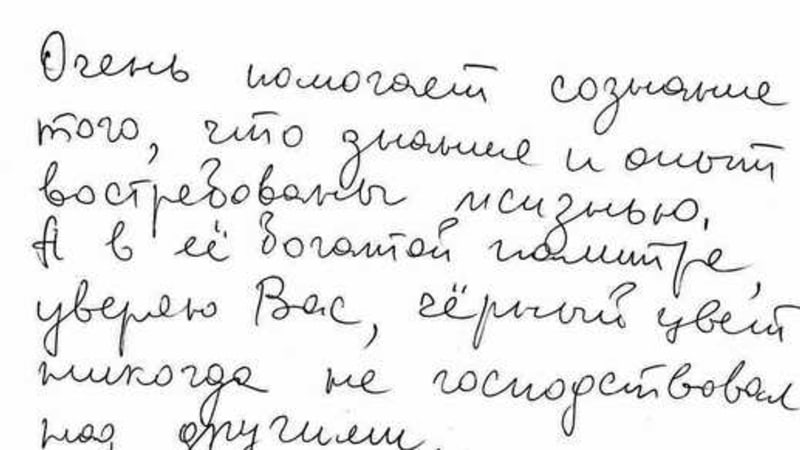 Очень помогает сознание
того, что знание и опыт
востребованы жизнью.
А в её богатой палитре,
уверяю Вас, чёрный цвет
никогда не господствовал
над другими.